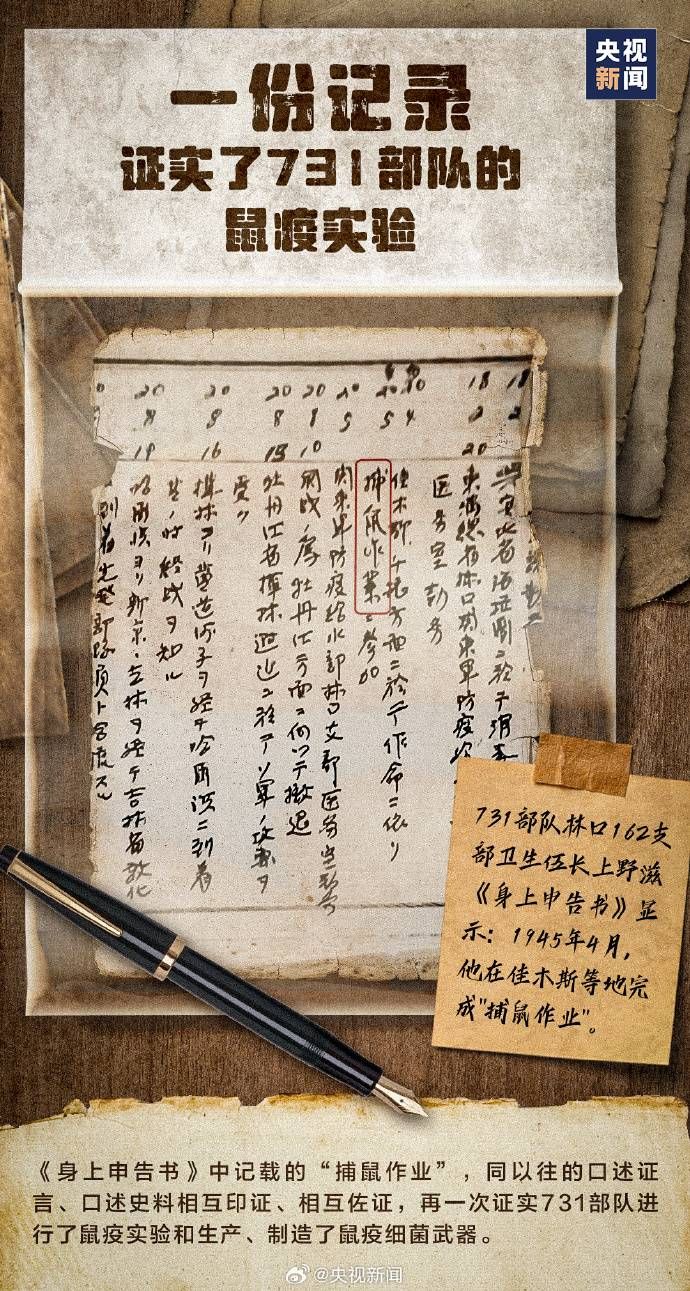 央视
新闻
一份记录
证实了731部队的
鼠疫实验
18
18
20
20
20
20
20
20
8
8
8
8
5
5
4
2
19
16
15
10
20
医务室勤務
佳木斯、千振方面ニ於テ作命ニ依リ
捕鼠作業ニ参加
関東軍防疫給水部林口支部医務室勤務
開戦ノ為牡丹江方面ニ向ツテ撤退
牡丹江省樺林附近ニ於テソ軍ノ攻撃ヲ
受ク
樺林ヨリ
ヲ経テ哈爾浜ニ到着
其ノ時終戦ヲ知ル
哈爾浜ヨリ新京、吉林ヲ経テ吉林省敦化
到着先発部隊員ト合流ス
731部队林口162支
部卫生伍长上野滋
《身上申告书》显
示：1945年4月，
他在佳木斯等地完
成"捕鼠作业"。
《身上申告书》中记载的“捕鼠作业”，同以往的口述证
言、口述史料相互印证、相互佐证，再一次证实731部队进
行了鼠疫实验和生产、制造了鼠疫细菌武器。
@央视新闻